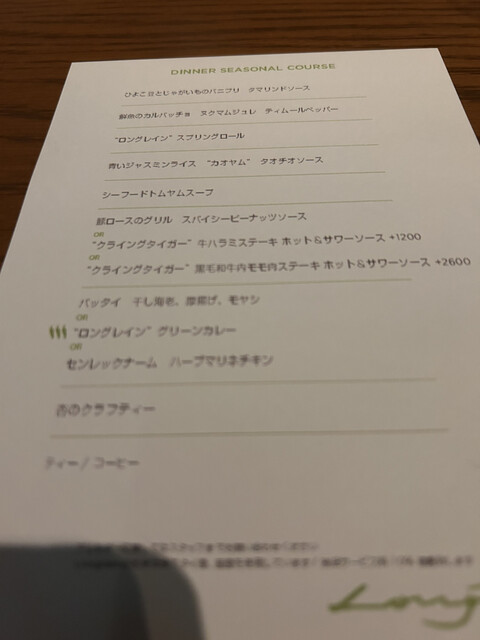 DINNER SEASONAL COURSE
ひよこ豆とじゃがいものパニプリ タマリンドソース
鮮魚のカルパッチョ ヌクマムジュレ ティムールペッパー
"ロングレイン" スプリングロール
青いジャスミンライス "カオヤム" タオチオソース
シーフードトムヤムスープ
豚ロースのグリル スパイシーピーナッツソース
OR
"クライングタイガー" 牛ハラミステーキ ホット&サワーソース +1200
OR
"クライングタイガー" 黒毛和牛内モモ肉ステーキ ホット&サワーソース +2600
パッタイ 干し海老、厚揚げ、モヤシ
OR
"ロングレイン" グリーンカレー
OR
センレックナーム ハーブマリネチキン
杏のクラフティー
ティー / コーヒー